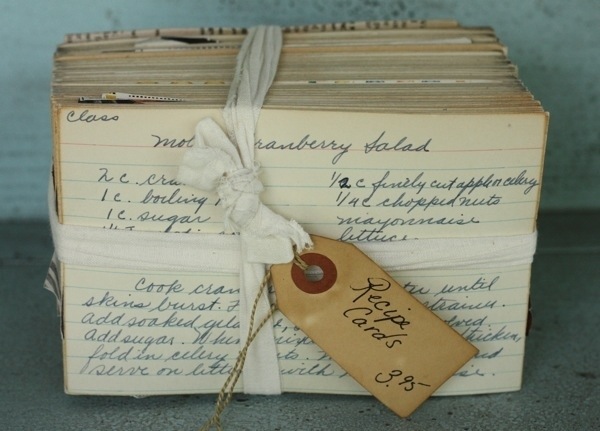 Class
Cranberry Salad
2 c.
1 c. boiling
1 c. sugar
1/2 c finely cut apple or celery
1/4 c chopped nuts
mayonnaise
lettuce.
Cook until
skins burst.
add soaked
add sugar. When thicken,
fold in celery
serve on with
Recipe
Cards
3.95